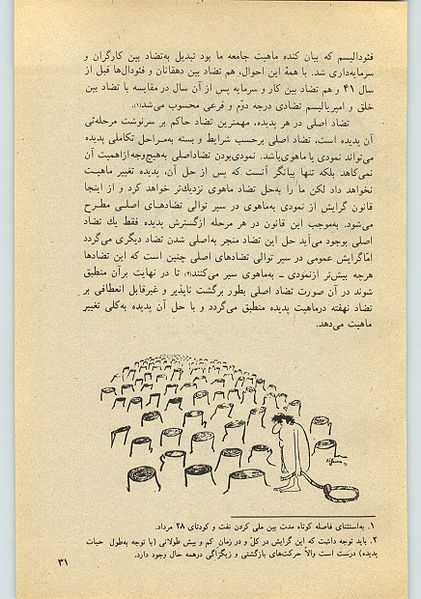 فئودالیسم که بیان کننده ماهیت جامعه ما بود تبدیل به‌تضاد بین کارگران و
سرمایه‌داری شد. با همهٔ این احوال، هم تضاد بین دهقانان و فئودال‌ها قبل از
سال ۴۱ و هم تضاد بین کار و سرمایه پس از آن سال در مقایسه با تضاد بین
خلق و امپریالیسم تضادی درجه دوم و فرعی محسوب می‌شد(۱).
تضاد اصلی در هر پدیده، مهمترین تضاد حاکم بر سرنوشت مرحله‌ئی
آن پدیده است، تضاد اصلی برحسب شرایط و بسته به‌مراحل تکاملی پدیده
می‌تواند نمودی یا ماهوی‌باشد. نمودی‌بودن تضاداصلی به‌هیچ‌وجه‌ازاهمیت آن
نمی‌کاهد بلکه تنها بیانگر آنست که پس از حل آن، پدیده تغییر ماهیت
نخواهد داد لکن ما را به‌حل تضاد ماهوی نزدیك‌تر خواهد کرد و از اینجا
قانون گرایش از نمودی به‌ماهوی در سیر توالی تضادهای اصلی مطرح
می‌شود. به‌موجب این قانون در هر مرحله ازگسترش پدیده فقط یك تضاد
اصلی بوجود می‌آید حل این تضاد منجر به‌اصلی شدن تضاد دیگری می‌گردد
امّاگرایش عمومی در سیر توالی تضادهای اصلی چنین است که این تضادها
هرچه بیش‌تر ازنمودی ــ به‌ماهوی سیر می‌کنند(۲) تا در نهایت برآن منطبق
شوند در آن صورت تضاد اصلی بطور برگشت ناپذیر و غیرقابل انعطافی بر
تضاد نهفته درماهیت پدیده منطبق می‌گردد و با حل آن پدیده به‌کلی تغییر
ماهیت می‌دهد.
۱. به‌استثنای فاصله کوتاه مدت بین ملی کردن نفت و کودتای ۲۸ مرداد.
۲. باید توجه داشت که این گرایش در کلّ و در زمان کم و بیش طولانی (با توجه به‌طول حیات
پدیده) درست است والاّ حرکت‌های بازگشتی و زیگزاگی درهمه حال وجود دارد.
۳۱